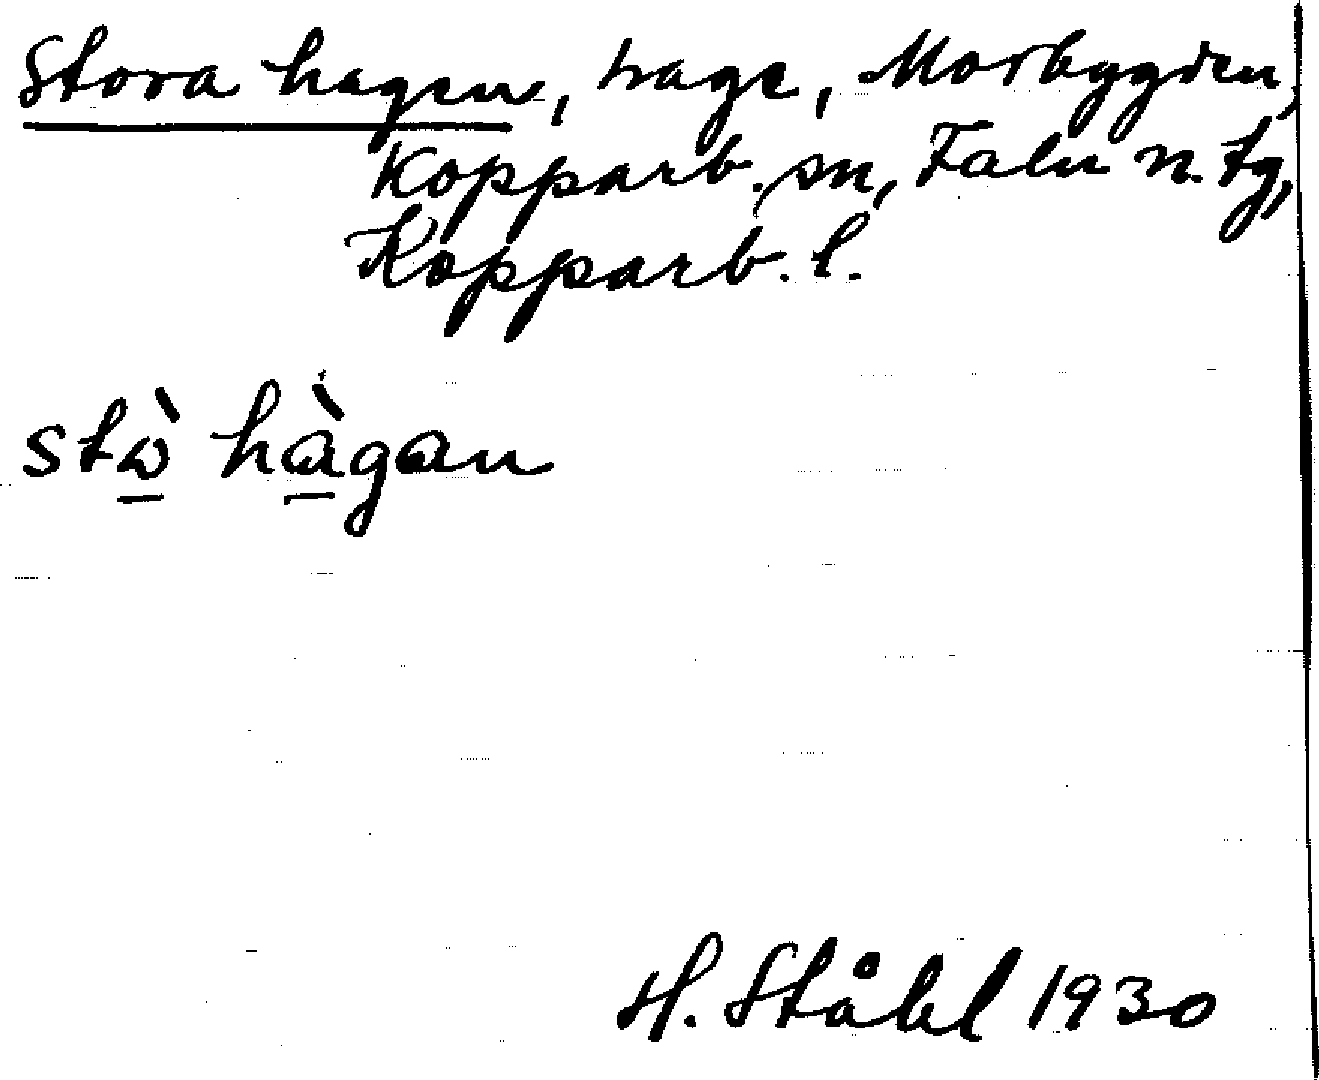 Stora hagen, hage, Morbygden,
Kopparb. sn, Falu n. tg,
Kopparb. l.
stὼ hàgan
H. Ståhl 1930